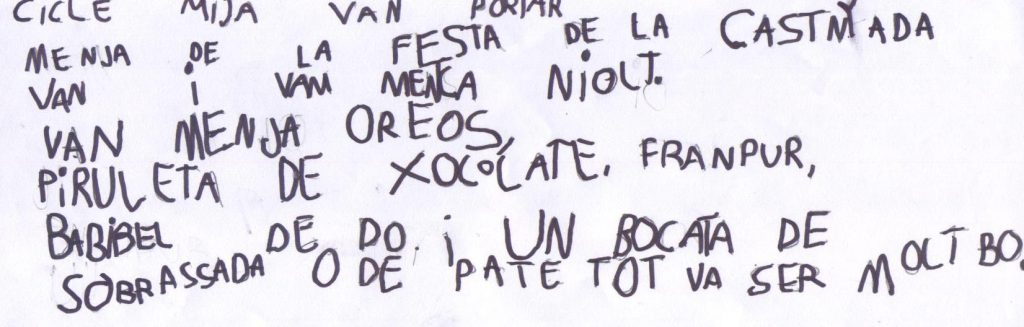 CICLE MIJA VAN PORTAR
MENJA DE LA FESTA DE LA CASTNYADA
VAN I VAM MENCA NIOLT.
VAN MENJA OREOS,
PIRULETA DE XOCOLATE. FRANPUR,
BABIBEL DE DO. i UN BOCATA DE
SOBRASSADA O DE PATE TOT VA SER MOLT BO.